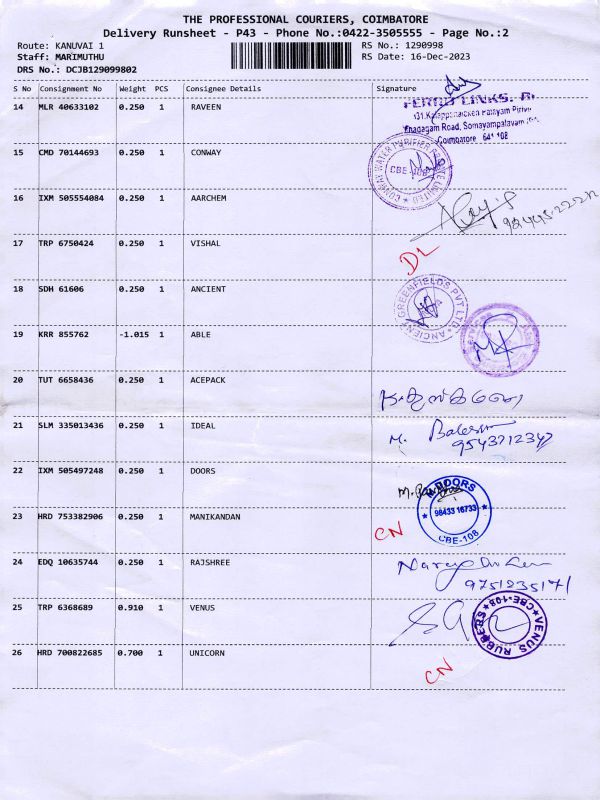 THE PROFESSIONAL COURIERS, COIMBATORE
Delivery Runsheet - P43 - Phone No.:0422-3505555 - Page No.:2
Route: KANUVAI 1 RS No.: 1290998
Staff: MARIMUTHU RS Date: 16-Dec-2023
DRS No.: DCJB129099802
S No Consignment No Weight PCS Consignee Details Signature
14 MLR 40633102 0.250 1 RAVEEN
FERRO LINKS.
Road, Somayampalayam
Coimbatore 641 108
15 CMD 70144693 0.250 1 CONWAY
CONWAY WATER PURIFIER PRIVATE LIMITED
CBE-108
16 IXM 505554084 0.250 1 AARCHEM
17 TRP 6750424 0.250 1 VISHAL
DL
18 SDH 61606 0.250 1 ANCIENT
ANCIENT GREENFIELDS PVT LTD.
19 KRR 855762 -1.015 1 ABLE
20 TUT 6658436 0.250 1 ACEPACK
21 SLM 335013436 0.250 1 IDEAL
M.
9543712347
22 IXM 505497248 0.250 1 DOORS
DOORS
98433 16733
CBE-108
23 HRD 753382906 0.250 1 MANIKANDAN
CN
24 EDQ 10635744 0.250 1 RAJSHREE
9751235171
25 TRP 6368689 0.910 1 VENUS
VENUS RUBBERS CBE-108
26 HRD 700822685 0.700 1 UNICORN
CN